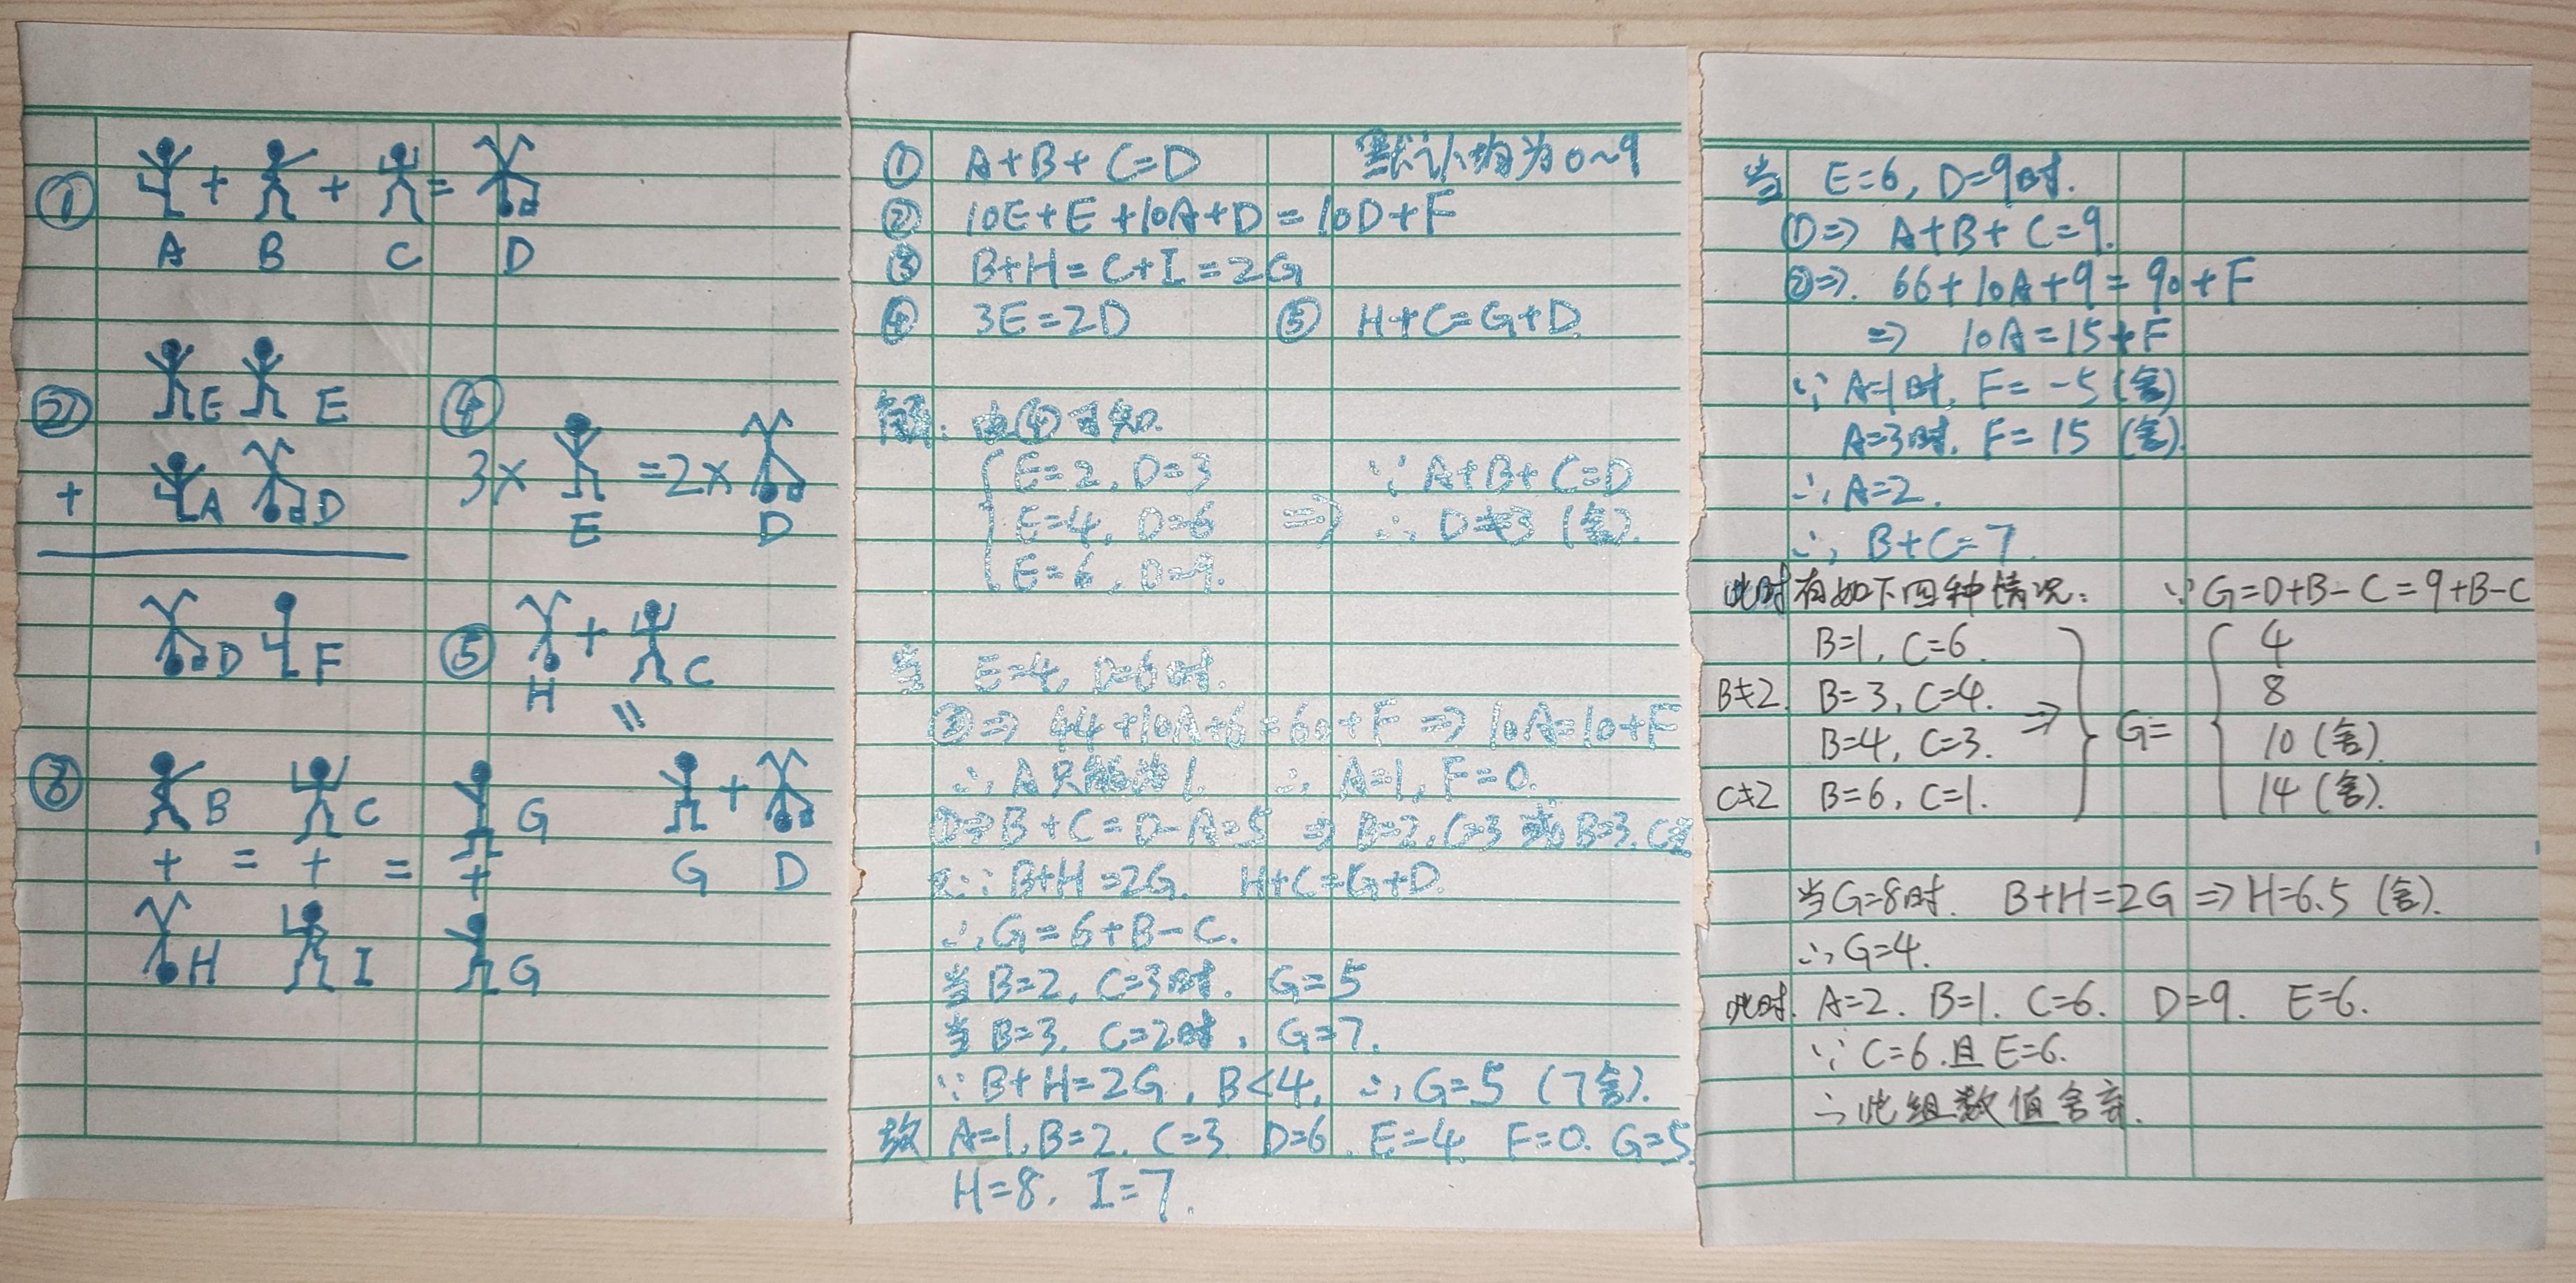 ①
A + B + C = D
② E E
+ A D
D F
③ B = C = G
+ + +
H I G
④ 3× E =2× D
⑤ H + C
=
G + D
① A+B+C=D 默认均为0~9
② 10E+E+10A+D=10D+F
③ B+H=C+I=2G
④ 3E=2D ⑤ H+C=G+D
解: 由④可知.
E=2, D=3 ∵A+B+C=D
E=4, D=6 ⇒ ∴D≠3 (舍).
E=6, D=9.
当 E=4, D=6时.
②⇒ 44+10A+6=60+F ⇒ 10A=10+F
∴A只能为1. ∴A=1, F=0.
①⇒B+C=D-A=5 ⇒ B=2, C=3 或 B=3, C=2
又∵B+H=2G. H+C=G+D.
∴G=6+B-C.
当B=2, C=3时. G=5
当B=3. C=2时, G=7.
∵B+H=2G, B<4, ∴G=5 (7舍).
故 A=1, B=2. C=3. D=6. E=4. F=0. G=5.
H=8, I=7.
当 E=6, D=9时.
①⇒ A+B+C=9.
②⇒. 66+10A+9=90+F
⇒ 10A=15+F
∵A=1时, F=-5 (舍)
A=3时, F=15 (舍).
∴A=2.
∴B+C=7.
此时有如下四种情况: ∵G=D+B-C=9+B-C
B=1, C=6. 4
B≠2. B=3, C=4. 8
B=4, C=3. ⇒ G= 10 (舍)
C≠2 B=6, C=1. 14 (舍).
当G=8时. B+H=2G ⇒H=6.5 (舍).
∴G=4.
此时. A=2. B=1. C=6. D=9. E=6.
∵C=6.且E=6.
∴此组数值舍弃.